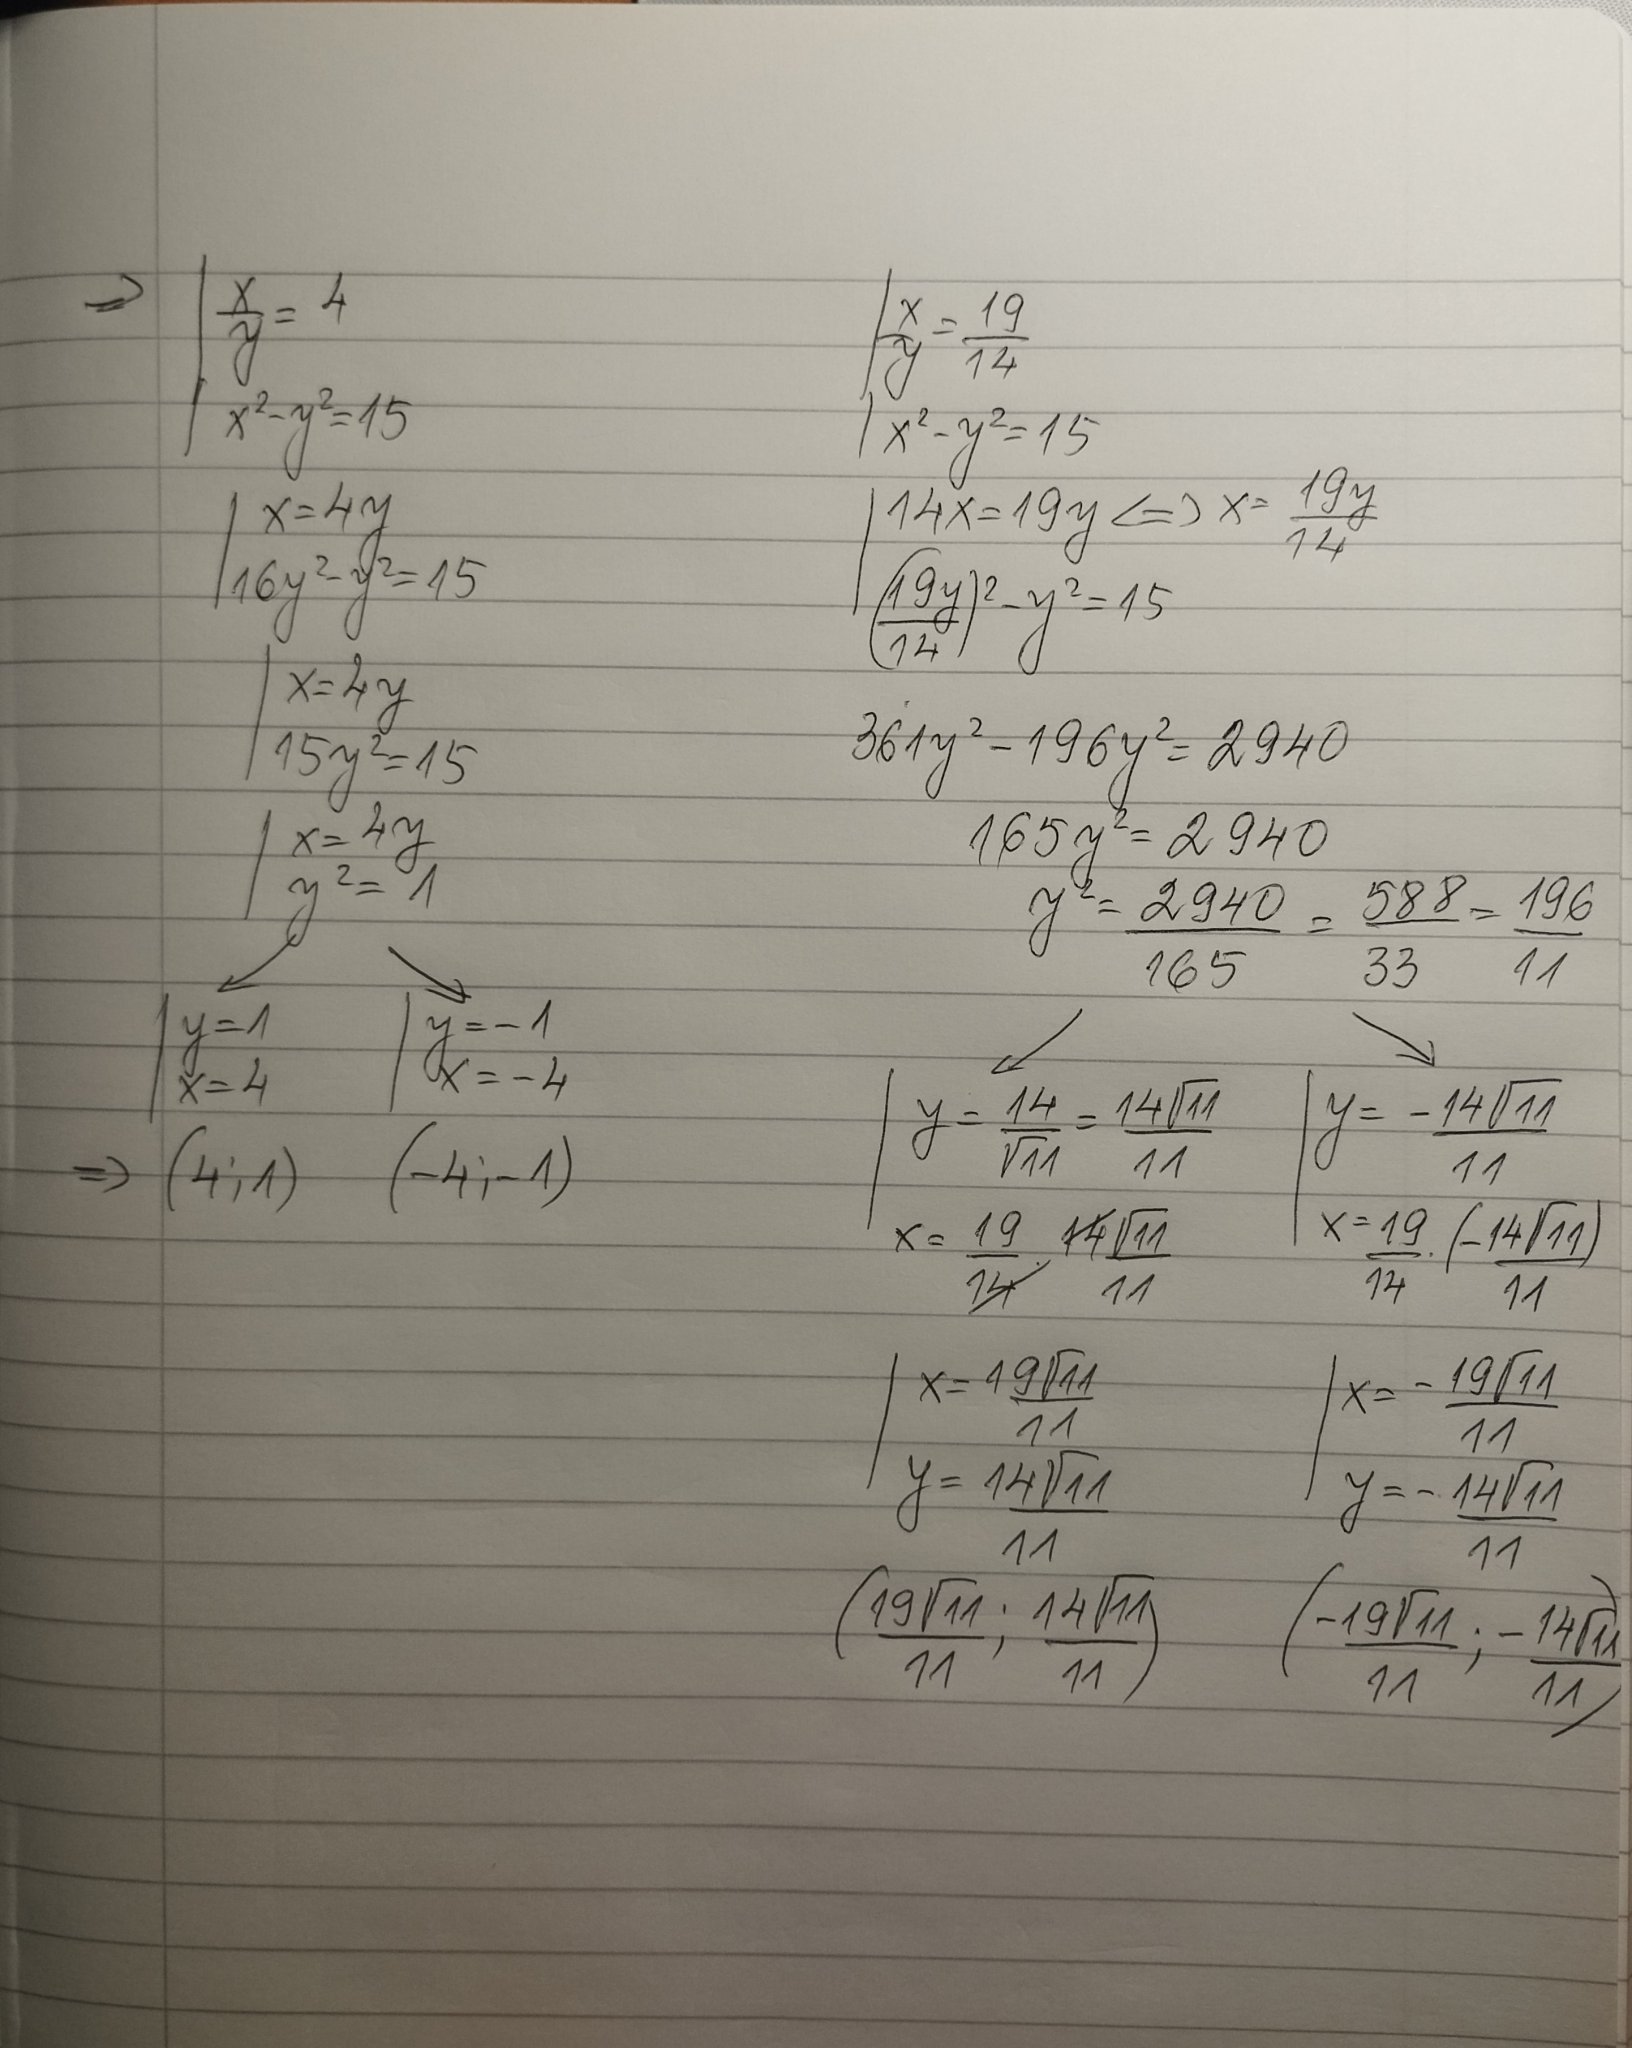 ⇒ | x/y = 4
| x² - y² = 15
| x = 4y
| 16y² - y² = 15
| x = 4y
| 15y² = 15
| x = 4y
| y² = 1
↙ ↘
| y = 1 | y = -1
| x = 4 | x = -4
⇒ (4; 1) (-4; -1)
| x/y = 19/14
| x² - y² = 15
| 14x = 19y <=> x = 19y/14
| (19y/14)² - y² = 15
361y² - 196y² = 2940
165y² = 2940
y² = 2940/165 = 588/33 = 196/11
↙ ↘
| y = 14/√11 = 14√11/11 | y = -14√11/11
x = 19/14 . 14√11/11 | x = 19/14 . (-14√11/11)
| x = 19√11/11 | x = -19√11/11
| y = 14√11/11 | y = -14√11/11
(19√11/11; 14√11/11) (-19√11/11; -14√11/11)